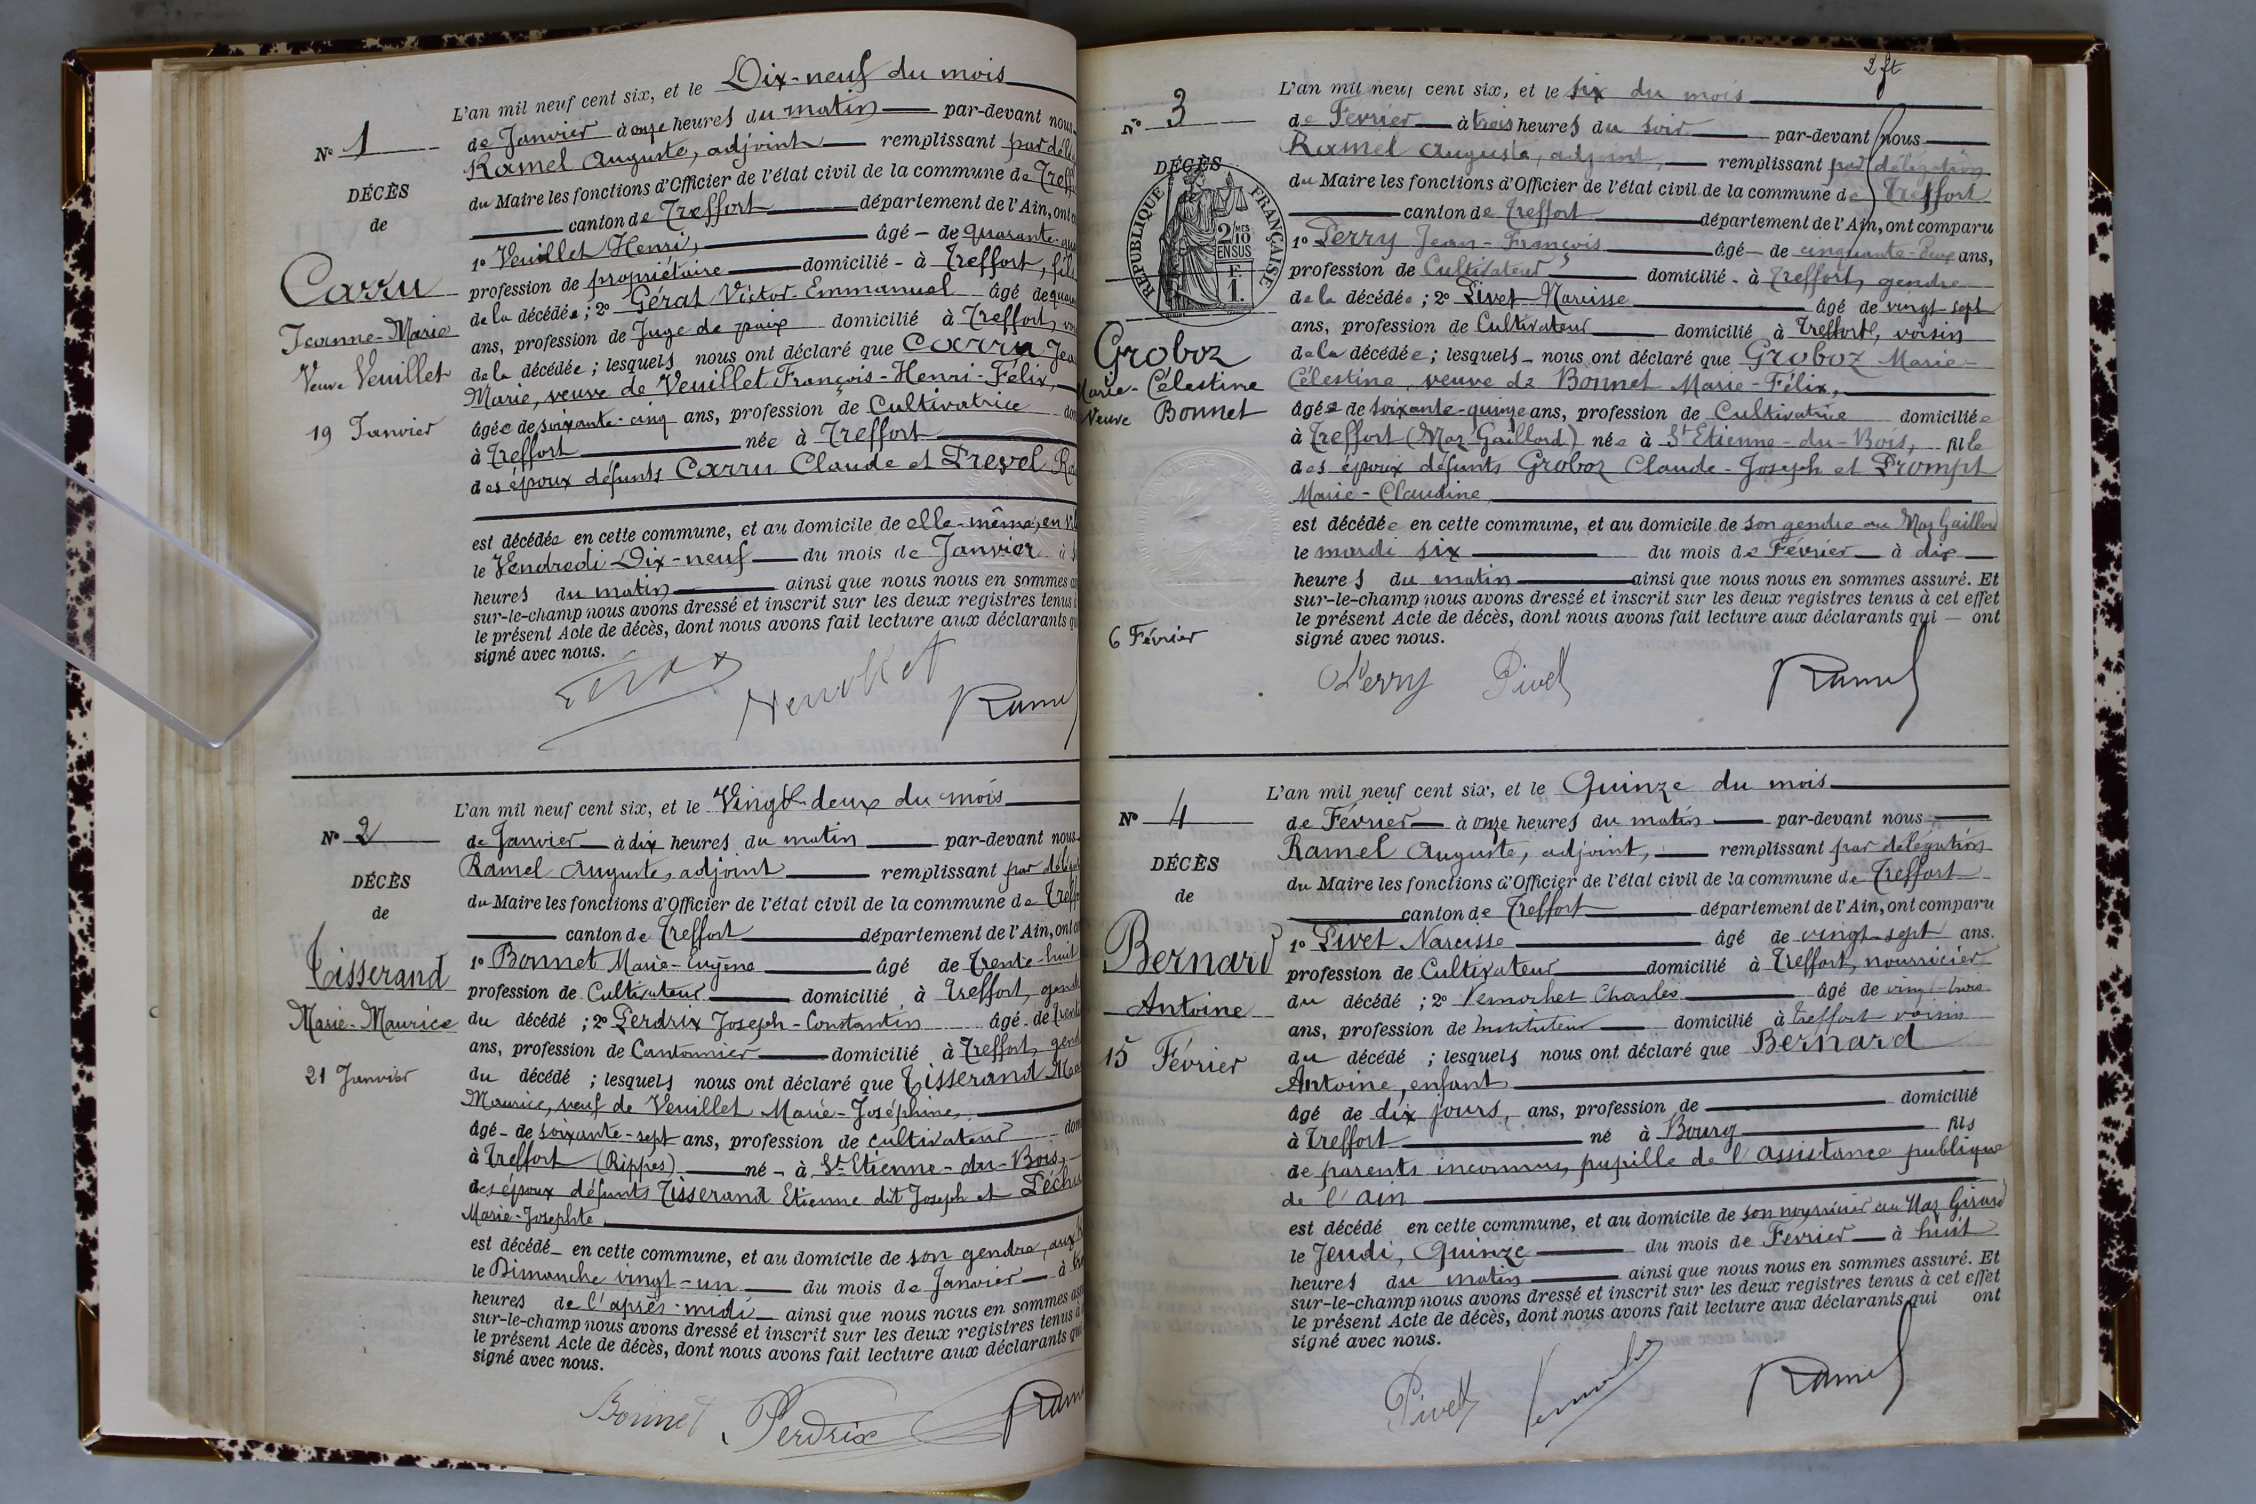 N° 1
DÉCÈS
de
Carru
Jeanne-Marie
Veuve Veuillet
19 Janvier
L'an mil neuf cent six, et le Dix-neuf du mois
de Janvier à onze heures du matin par-devant nous
Ramel Auguste, adjoint remplissant par
du Maire les fonctions d'Officier de l'état civil de la commune de
canton de Treffort département de l'Ain, ont
1° Veuillet Henri, âgé de quarante-
profession de propriétaire domicilié à Treffort, fils
de la décédée ; 2° Gérat Victor-Emmanuel âgé de
ans, profession de Juge de paix domicilié à Treffort,
de la décédée ; lesquels nous ont déclaré que Carru
Marie, veuve de Veuillet François-Henri-Félix,
âgée de soixante-cinq ans, profession de Cultivatrice
à Treffort née à Treffort
des époux défunts Carru Claude et Prevel
est décédée en cette commune, et au domicile de elle-même, en
le Vendredi Dix-neuf du mois de Janvier à
heures du matin ainsi que nous nous en sommes
sur-le-champ nous avons dressé et inscrit sur les deux registres tenus à
le présent Acte de décès, dont nous avons fait lecture aux déclarants
signé avec nous.
Gérat Veuillet Ramel
N° 2
DÉCÈS
de
Tisserand
Marie-Maurice
21 Janvier
L'an mil neuf cent six, et le Vingt-deux du mois
de Janvier à dix heures du matin par-devant nous
Ramel Auguste, adjoint remplissant par
du Maire les fonctions d'Officier de l'état civil de la commune de
canton de Treffort département de l'Ain, ont
1° Bonnet Marie-Eugène âgé de trente-huit
profession de Cultivateur domicilié à Treffort,
du décédé ; 2° Perdrix Joseph-Constantin âgé de
ans, profession de Cantonnier domicilié à Treffort,
du décédé ; lesquels nous ont déclaré que Tisserand
Maurice, veuf de Veuillet Marie-Joséphine,
âgé de soixante-sept ans, profession de cultivateur
à Treffort (Rippes) né à St Etienne-du-Bois,
des époux défunts Tisserand Etienne dit Joseph et
Marie-Josephte
est décédé en cette commune, et au domicile de son gendre, aux
le Dimanche vingt-un du mois de Janvier à
heures de l'après-midi ainsi que nous nous en sommes
sur-le-champ nous avons dressé et inscrit sur les deux registres tenus à
le présent Acte de décès, dont nous avons fait lecture aux déclarants qui
signé avec nous.
Bonnet Perdrix Ramel
2 ft
N° 3
DÉCÈS
RÉPUBLIQUE FRANÇAISE
2/10 MES
EN SUS
F.
1.
Groboz
Marie-Célestine
Veuve Bonnet
6 Février
L'an mil neuf cent six, et le six du mois
de Février à trois heures du soir par-devant nous
Ramel Auguste, adjoint, remplissant par délégation
du Maire les fonctions d'Officier de l'état civil de la commune de Treffort
canton de Treffort département de l'Ain, ont comparu
1° Perry Jean-François âgé de cinquante-deux ans,
profession de Cultivateur domicilié à Treffort, gendre
de la décédée ; 2° Pivet Narcisse âgé de vingt-sept
ans, profession de Cultivateur domicilié à Treffort, voisin
de la décédée ; lesquels nous ont déclaré que Groboz Marie-
Célestine, veuve de Bonnet Marie-Félix,
âgée de soixante-quinze ans, profession de Cultivatrice domiciliée
à Treffort (Maz Gaillard) née à St Etienne-du-Bois, fille
des époux défunts Groboz Claude-Joseph et Prompt
Marie-Claudine
est décédée en cette commune, et au domicile de son gendre au Maz Gaillard
le mardi six du mois de Février à dix
heures du matin ainsi que nous nous en sommes assuré. Et
sur-le-champ nous avons dressé et inscrit sur les deux registres tenus à cet effet
le présent Acte de décès, dont nous avons fait lecture aux déclarants qui ont
signé avec nous.
Perry Pivet Ramel
N° 4
DÉCÈS
de
Bernard
Antoine
15 Février
L'an mil neuf cent six, et le Quinze du mois
de Février à onze heures du matin par-devant nous
Ramel Auguste, adjoint, remplissant par délégation
du Maire les fonctions d'Officier de l'état civil de la commune de Treffort
canton de Treffort département de l'Ain, ont comparu
1° Pivet Narcisse âgé de vingt-sept ans.
profession de Cultivateur domicilié à Treffort, nourricier
du décédé ; 2° Vernochet Charles âgé de vingt-trois
ans, profession de Instituteur domicilié à Treffort voisin
du décédé ; lesquels nous ont déclaré que Bernard
Antoine, enfant
âgé de dix jours, ans, profession de domicilié
à Treffort né à Bourg fils
de parents inconnus, pupille de l'assistance publique
de l'ain
est décédé en cette commune, et au domicile de son nourricier au Maz Girard
le Jeudi, Quinze du mois de Février à huit
heures du matin ainsi que nous nous en sommes assuré. Et
sur-le-champ nous avons dressé et inscrit sur les deux registres tenus à cet effet
le présent Acte de décès, dont nous avons fait lecture aux déclarants qui ont
signé avec nous.
Pivet Ramel